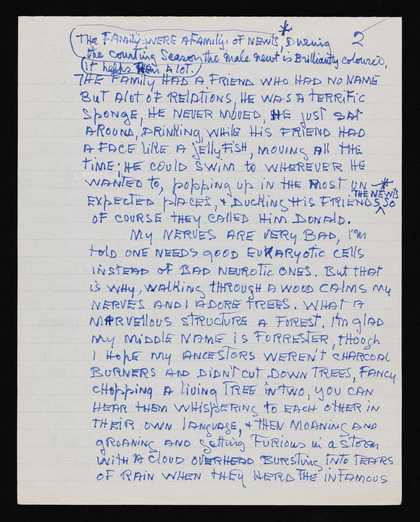 *
2
The Family were a family of Newts, During
the courting Season the male newt is Brilliantly coloured,
it helps a lot.
THE FAMILY HAD A FRIEND WHO HAD NO NAME
BUT A LOT OF RELATIONS, HE WAS A TERRIFIC
SPONGE, HE NEVER MOVED, HE JUST SAT
AROUND, DRINKING, WHILE HIS FRIEND HAD
A FACE LIKE A JELLYFISH, MOVING ALL THE
TIME; HE COULD SWIM TO WHEREVER HE
WANTED TO, POPPING UP IN THE MOST UN-*
EXPECTED PLACES, & DUCKING HIS FRIENDS, THE NEWTS SO
OF COURSE THEY CALLED HIM DONALD.
MY NERVES ARE VERY BAD, I'm
told ONE NEEDS GOOD EUKARYOTIC CELLS
INSTEAD OF BAD NEUROTIC ONES. BUT THAT
IS WHY, WALKING THROUGH A WOOD CALMS MY
NERVES AND I ADORE TREES. WHAT A
MARVELLOUS STRUCTURE A FOREST, I'm GLAD
MY MIDDLE NAME IS FORRESTER, THOUGH
I HOPE MY ANCESTORS WEREN'T CHARCOAL
BURNERS AND DIDN'T CUT DOWN TREES, FANCY
CHOPPING A LIVING TREE IN TWO, YOU CAN
HEAR THEM WHISPERING TO EACH OTHER IN
THEIR OWN LANGUAGE, & THEN MOANING AND
GROANING AND getting FURIOUS in a STORM
WITH A CLOUD OVERHEAD BURSTING INTO TEARS
OF RAIN WHEN THEY HERD THE INFAMOUS